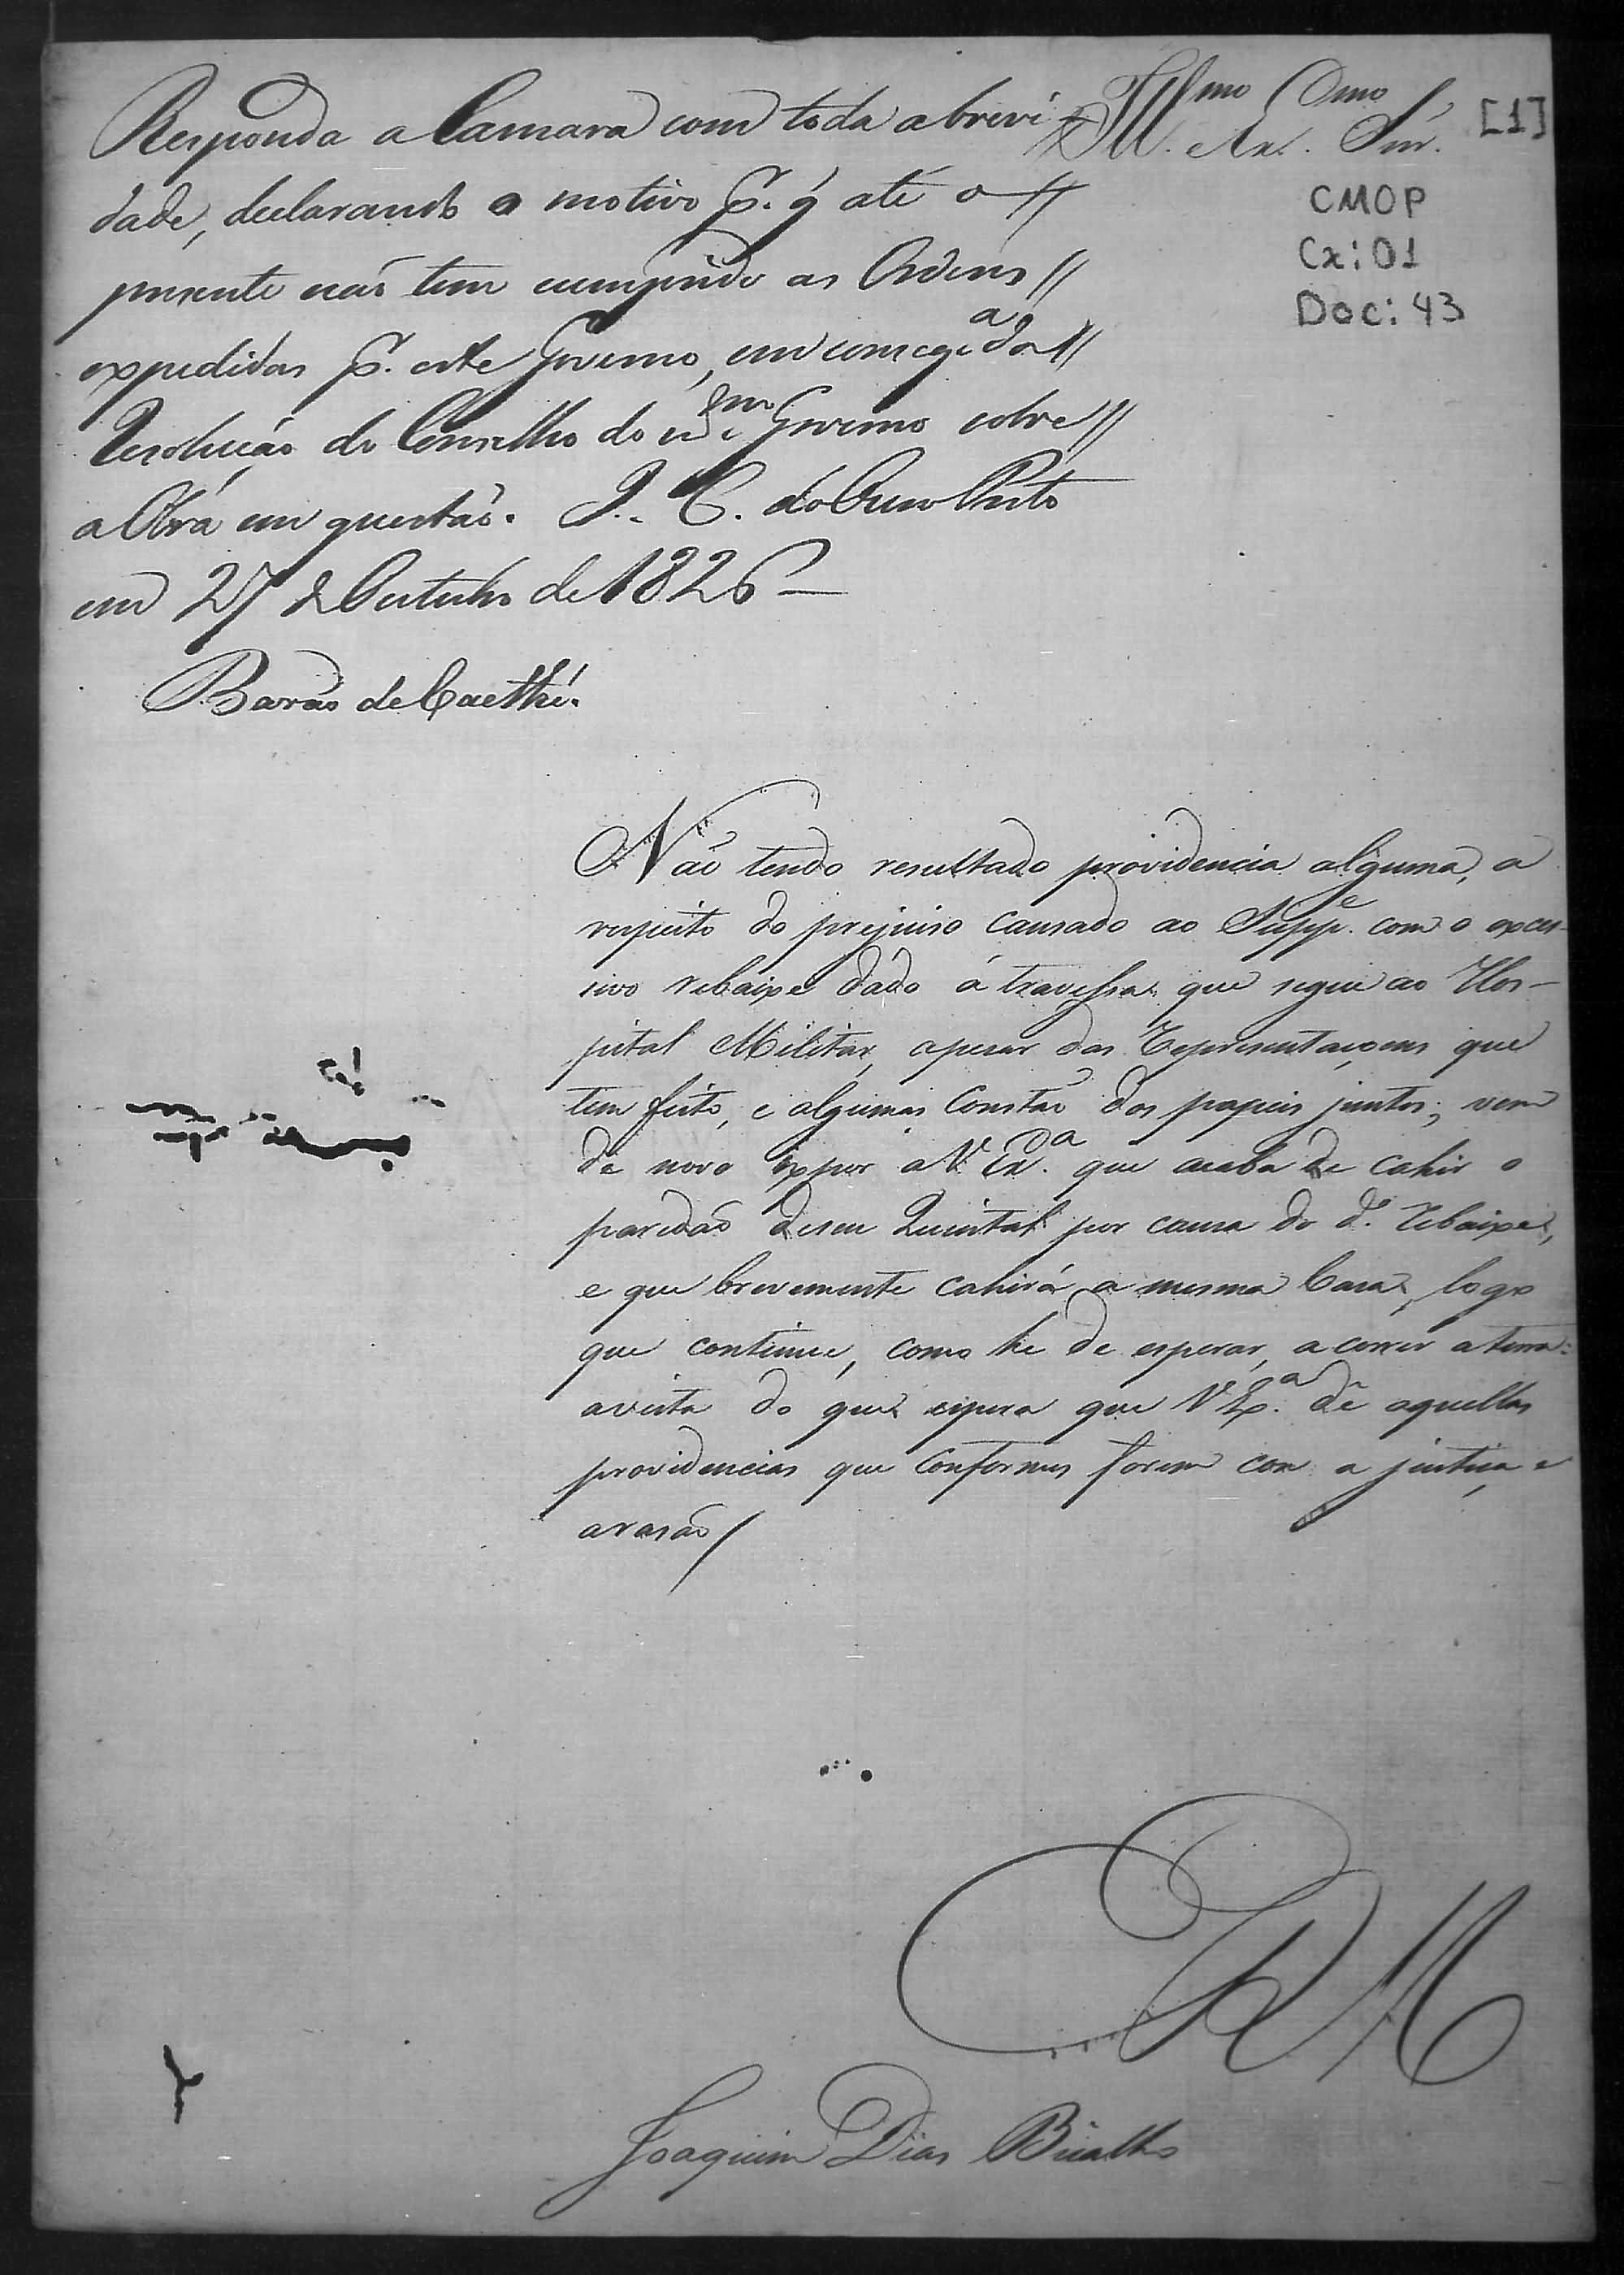 Illmo Exmo Snr.
[1]
CMOP
Cx: 01
Doc: 43
Responda a Camara com toda a brevi
dade, declarando o motivo p. q̃ até o //
presente não tem cumprido as Ordens //
expedidas p. este Governo, em conseqa da //
Resolução do Conselho do mmo Governo sobre //
a Obra em questão. I. C. do Ouro Preto
em 27 de Outubro de 1826 —
Barão de Caethé.
Não tendo resultado providencia alguma, a
respeito do prejuiso causado ao Suppe. com o exces-
sivo rebaixe dádo á travessa que segue ao Hos-
pital Militar, apesar das Representaçoens que
tem feito, e algumas Constão dos papeis juntos; vem
de novo expor a V. Exa. que acaba de cahir o
paredão de seu Quintal por causa do do. rebaixe,
e que brevemente cahirá a mesma Casa, logo
que continue, como he de esperar, a correr a terra:
avista do que espera que V Exa. dê aquellas
providencias que conformes forem com a justiça e
a rasão /
E R M
Joaquim Dias